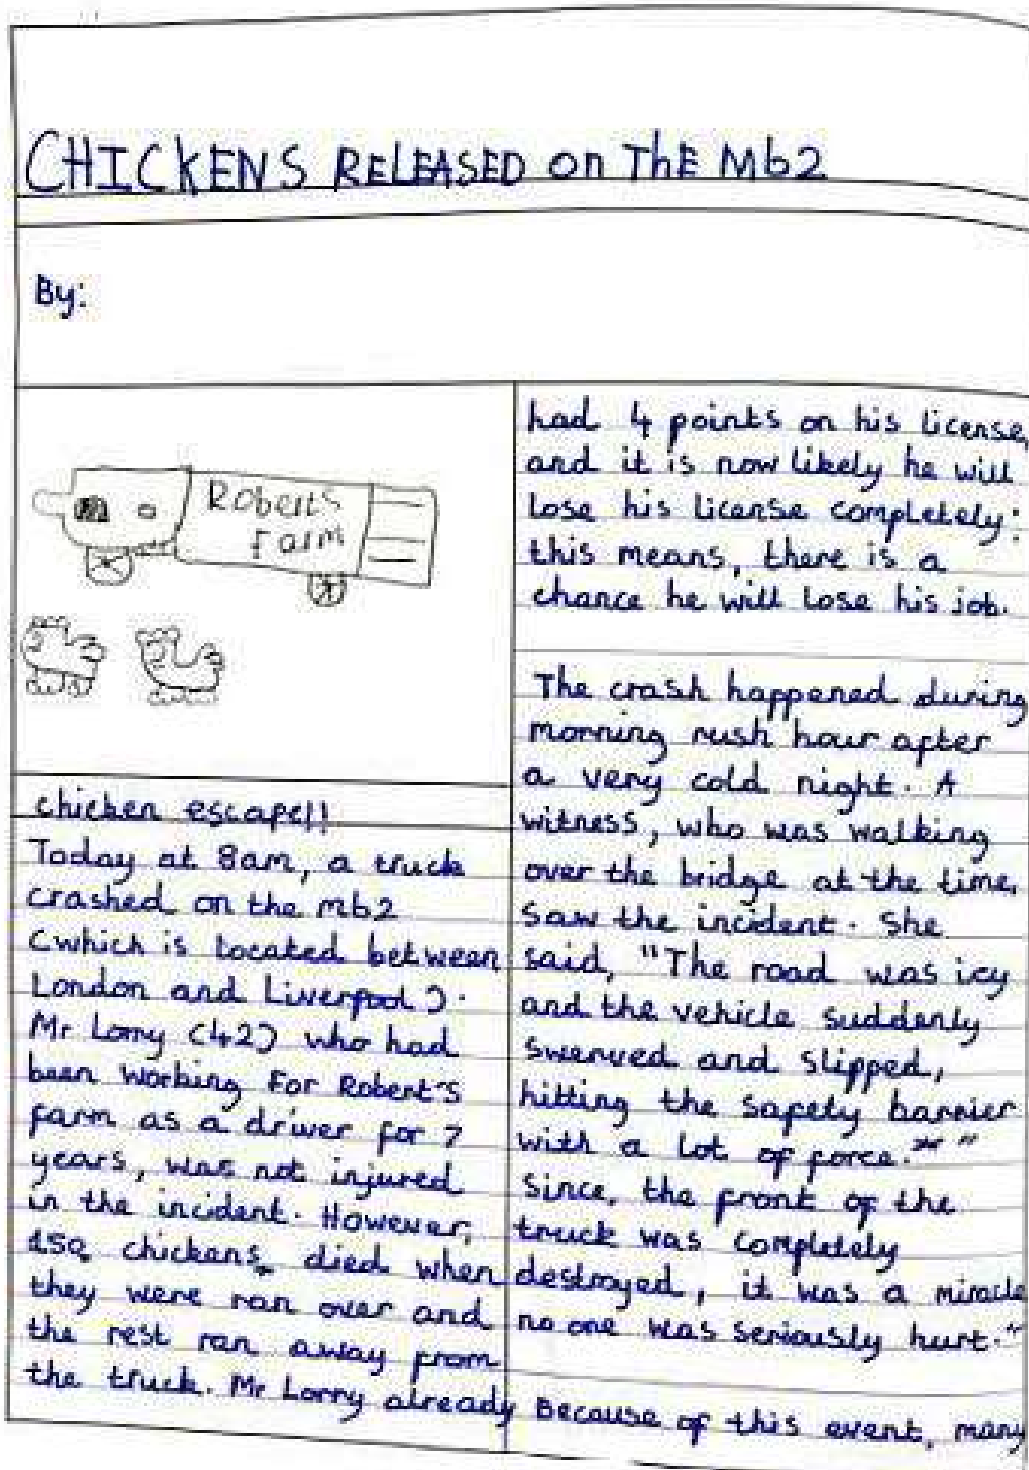 CHICKENS RELEASED on The M62
By:
Roberts
Farm
chicken escape!!
Today at 8am, a truck
crashed on the M62
(which is located between
London and Liverpool).
Mr Lorry (42) who had
been working For Robert's
farm as a driver for 7
years, was not injured
in the incident. However,
150, chickens, died when
they were ran over and
the rest ran away from
the truck. Mr Lorry already
had 4 points on his license,
and it is now likely he will
lose his license completely:
this means, there is a
chance he will lose his job.
The crash happened during
morning rush hour after
a very cold night. A
witness, who was walking
over the bridge at the time,
saw the incident. She
said, "The road was icy
and the vehicle suddenly
swerved and slipped,
hitting the safety barrier
with a lot of force."
Since, the front of the
truck was completely
destroyed, it was a miracle
no one was seriously hurt."
Because of this event, many